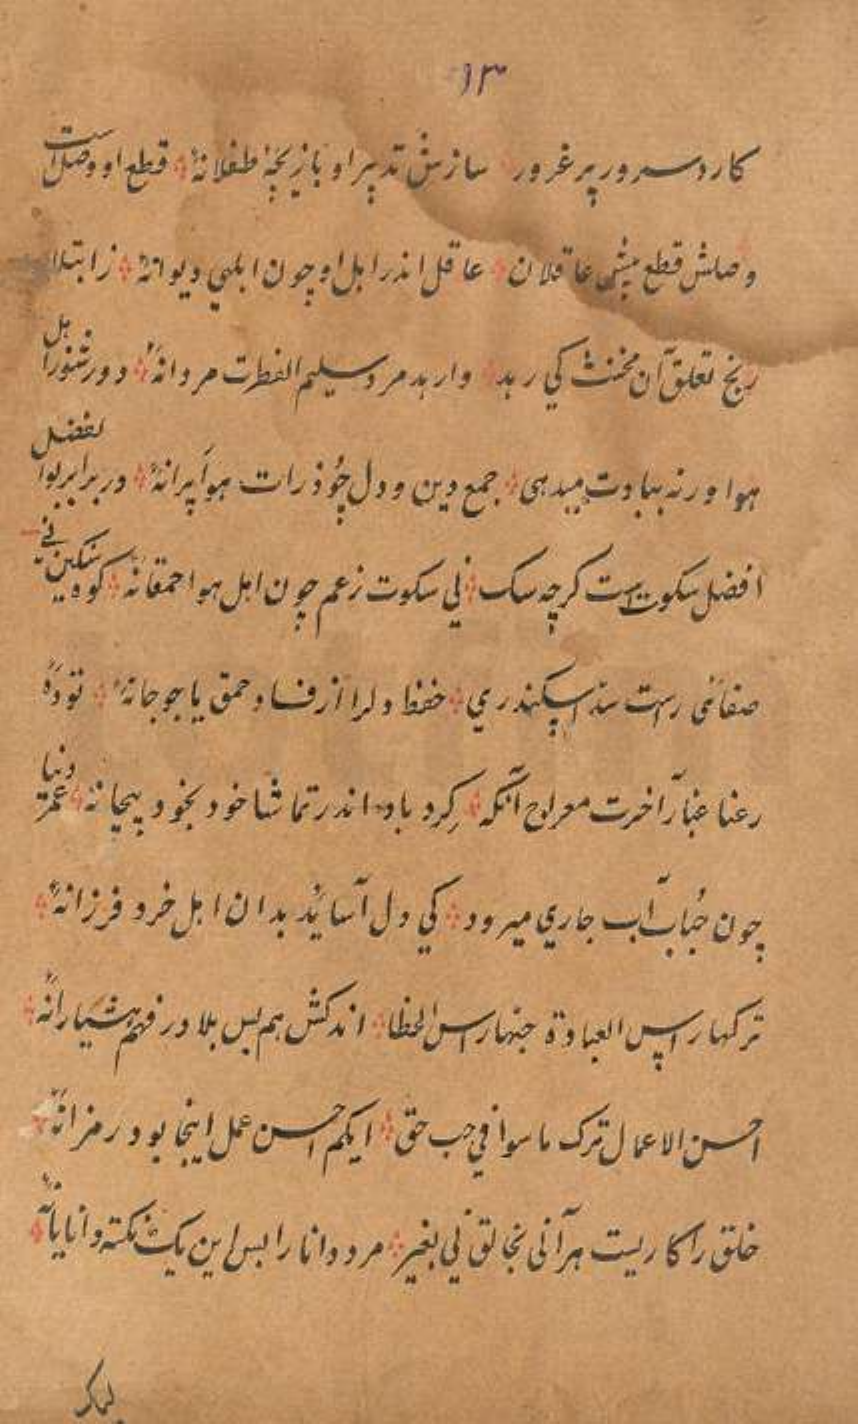 ۱۳
کار دسرور پر غرور سازش تدبیر او بازیچهٔ طفلانهٔ قطع او وصل است
وصلش قطع پیش عاقلان عاقل اندر اهل او چون ابلهی دیوانهٔ ز ابتلا
رنج تعلق آن مخنث کی رهد وارهد مرد سلیم الفطرت مردانهٔ دور شو از اهل
هوا ورنه ببادت میدهی جمع دین و دل چو ذرات هوا پرانهٔ در برابر لفضل
افضل سکوت است کرچه سک نی سکوت زعم چون اهل هوا حمقانهٔ کوه سنکین نی
صفائی راست سد اسکندری حفظ دلرا از فساد حمق یاجوجانهٔ تودهٔ
رعنا عنا آخرت معراج آنکه کرد باد اندر تماشا خود بخود پیچانهٔ عمر دنیا
چون حباب آب جاری میرود کی دل آساید بدان اهل خرد فرزانهٔ
ترکها راس العبادة حبها راس الخطا اندکش هم بس بلا در فهم هشیارانهٔ
احسن الاعمال ترک ماسوا فی حب حق ایکم احسن عمل اینجا بود رمزانهٔ
خلق را کاریست هر آنی بخالق نی بغیر مرد دانا را بس این یک نکته دانایانهٔ